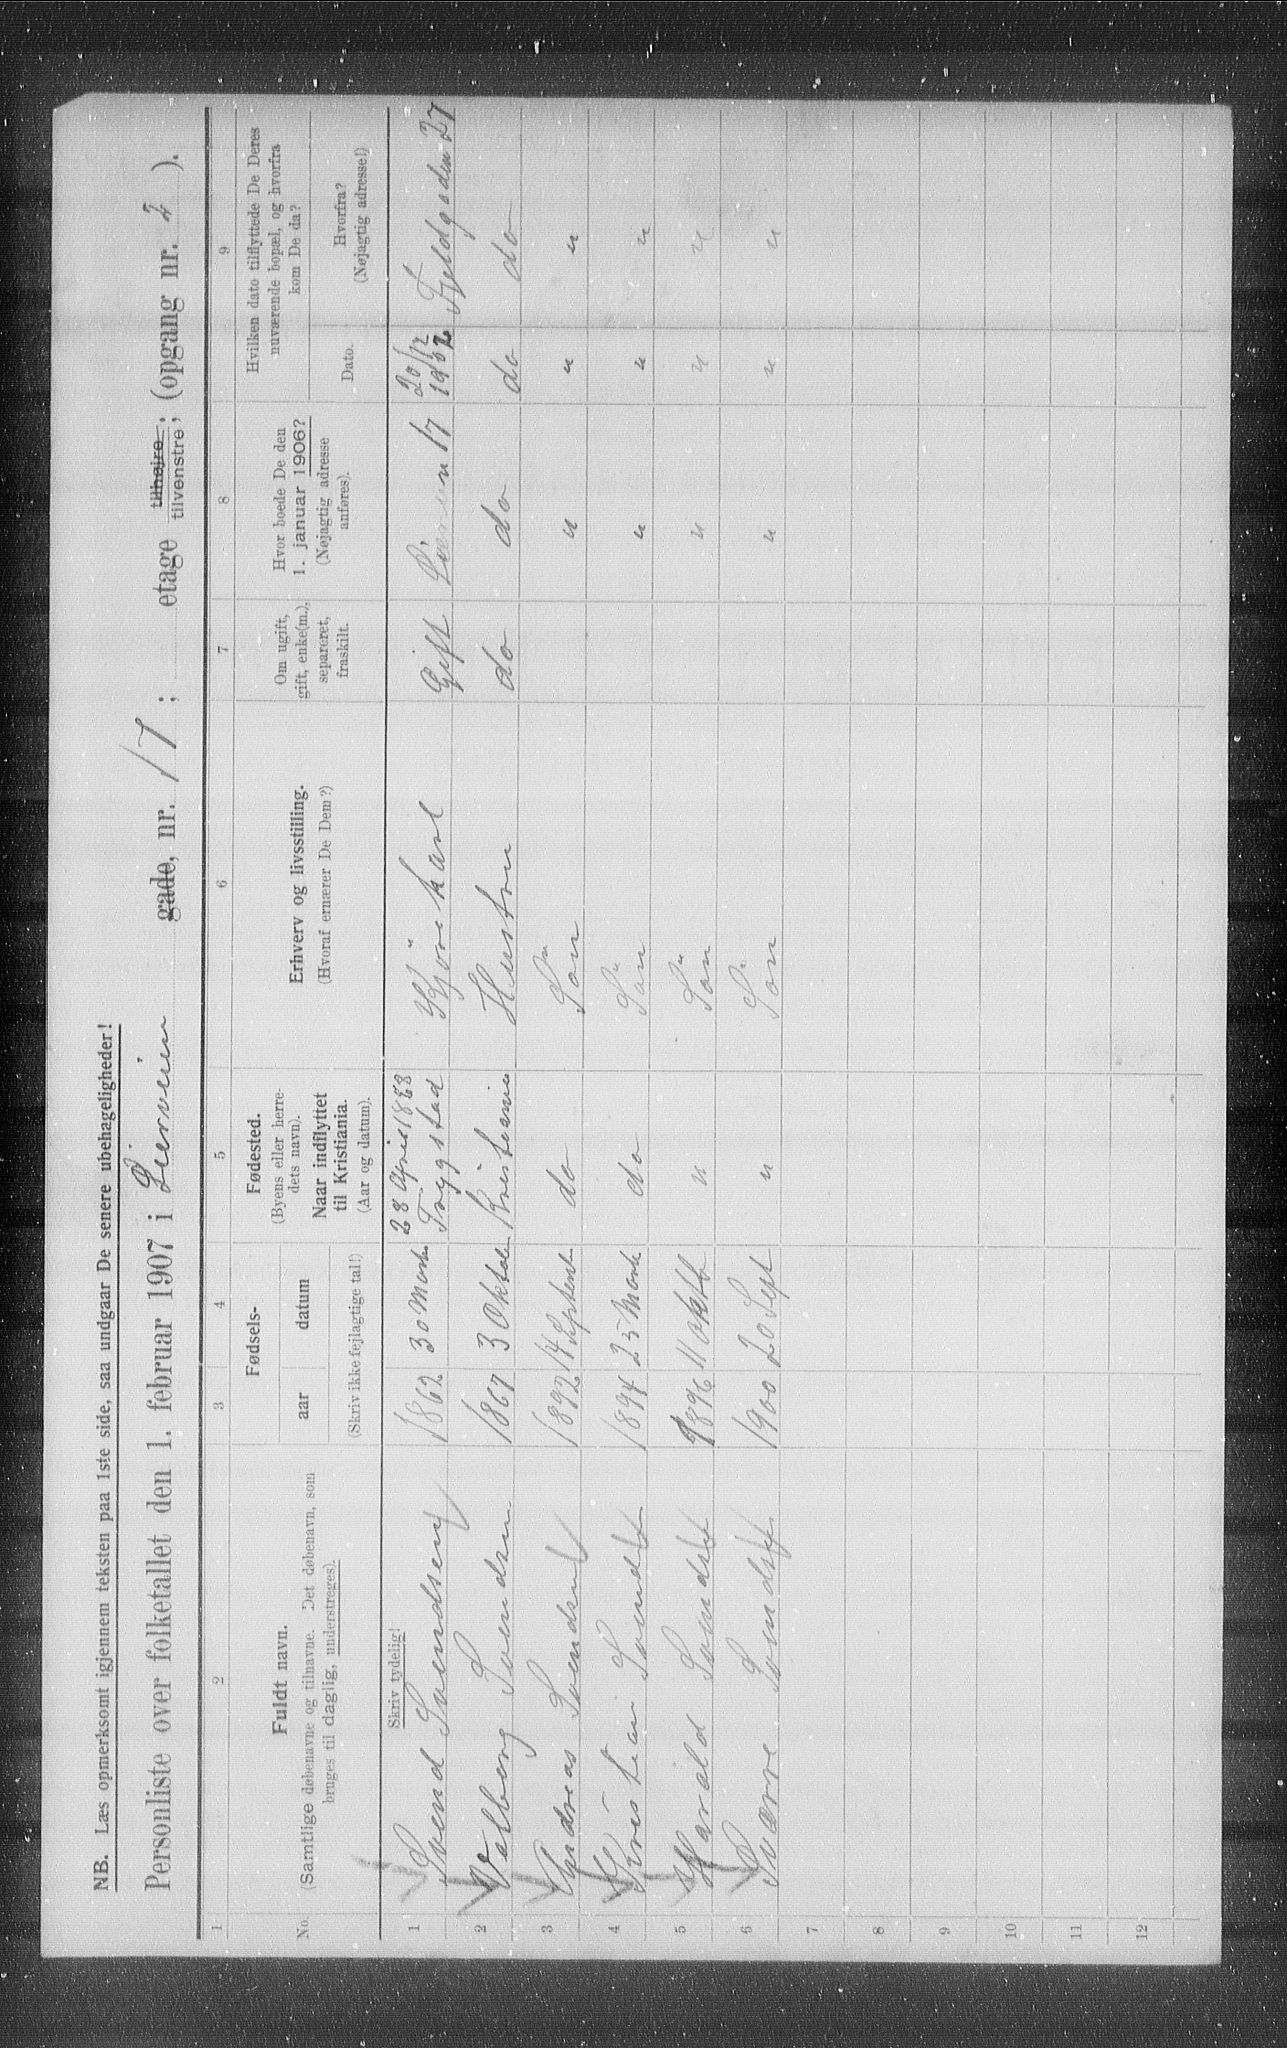 NB. Læs opmerksomt igjennem teksten paa 1ste side, saa undgaar De senere ubehageligheder!
Personliste over folketallet den 1. februar 1907 i Lierveien gade, nr. 17; etage tilhøire; tilvenstre; (opgang nr. 2).
1 2 3 4 5 6 7 8 9
No. Fuldt navn. (Samtlige døbenavne og tilnavne. Det døbenavn, som bruges til daglig, understreges).
Fødsels- aar datum (Skriv ikke fejlagtige tal!)
Fødested. (Byens eller herredets navn). Naar indflyttet til Kristiania. (Aar og datum).
Erhverv og livsstilling. (Hvoraf ernærer De Dem?)
Om ugift, gift, enke(m.), separeret, fraskilt.
Hvor boede De den 1. januar 1906? (Nøjagtig adresse anføres).
Hvilken dato tilflyttede De Deres nuværende bopæl, og hvorfra kom De da?
Dato. Hvorfra? (Nøjagtig adresse!)
Skriv tydelig!
1 Svend Svendsen 1862 30 Marts 28 April 1888 Trygstad Kjörekarl Gift 17 20/12 1902 Fjeldgaden 27
2 Valborg Svendsen 1867 3 Oktober Kristiania Hustru do do do do
3 Andreas Svendsen 1892 14 Septent do Sön " " "
4 Kristian Svendsen 1894 25 Marts do Sön " " "
5 Harald Svendsen 1896 11 oktb " Sön " " "
6 Sværre Svendsen 1900 20 Sept " Sön " " "
7
8
9
10
11
12